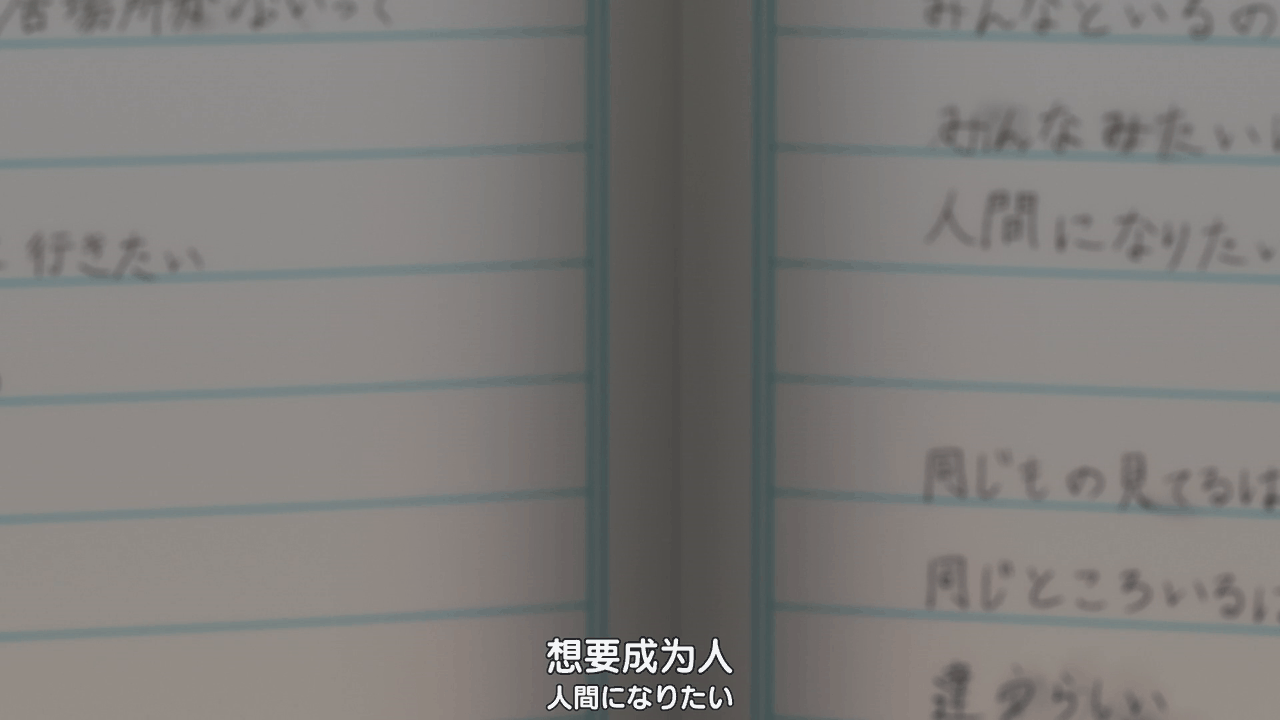 居場所がないって
行きたい
みんなといるの
みんなみたいに
人間になりたい
同じもの見てるは
同じところいるは
違うらしい
想要成为人
人間になりたい